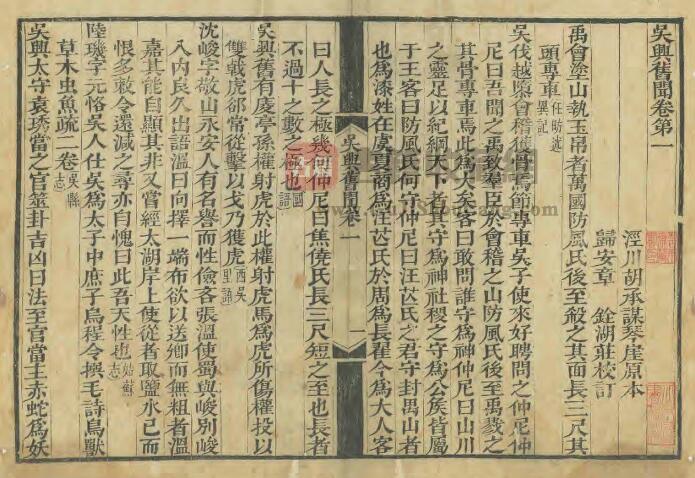 吳興舊聞卷第一
涇川胡承謀琴崖原本
歸安章 銓湖莊校訂
禹會塗山執玉帛者萬國防風氏後至殺之其面長三尺其
頭專車任昉述異記
吳伐越隳會稽獲骨焉節專車吳子使來好聘問之仲尼仲
尼曰吾聞之禹致羣臣於會稽之山防風氏後至禹戮之
其骨專車焉此爲大矣客曰敢問誰守爲神仲尼曰山川
之靈足以紀綱天下者其守爲神社稷之守爲公矦皆屬
于王客曰防風氏何守仲尼曰汪芒氏之君守封禺山者
也爲漆姓在虞夏商爲汪芒氏於周爲長翟今爲大人客
吳興舊聞卷一
一
曰人長之極幾何仲尼曰焦僥氏長三尺短之至也長者
不過十之數之極也國語
吳興舊有庱亭孫權射虎於此權射虎馬爲虎所傷權投以
雙戟虎卻常從擊以戈乃獲虎西吳里語
沈峻字敬山永安人有名譽而性儉客張溫使蜀與峻別峻
入內良久出語溫曰向擇一端布欲以送卿而無粗者溫
嘉其能自顯其非又嘗經太湖岸上使從者取鹽水已而
恨多敕令還減之尋亦自愧曰此吾天性也姑蘇志
陸璣字元恪吳人仕吳爲太子中庶子烏程令撰毛詩鳥獸
草木虫魚疏二卷吳縣志
吳興太守袁琇當之官筮卦吉凶曰法至官當主赤蛇爲妖